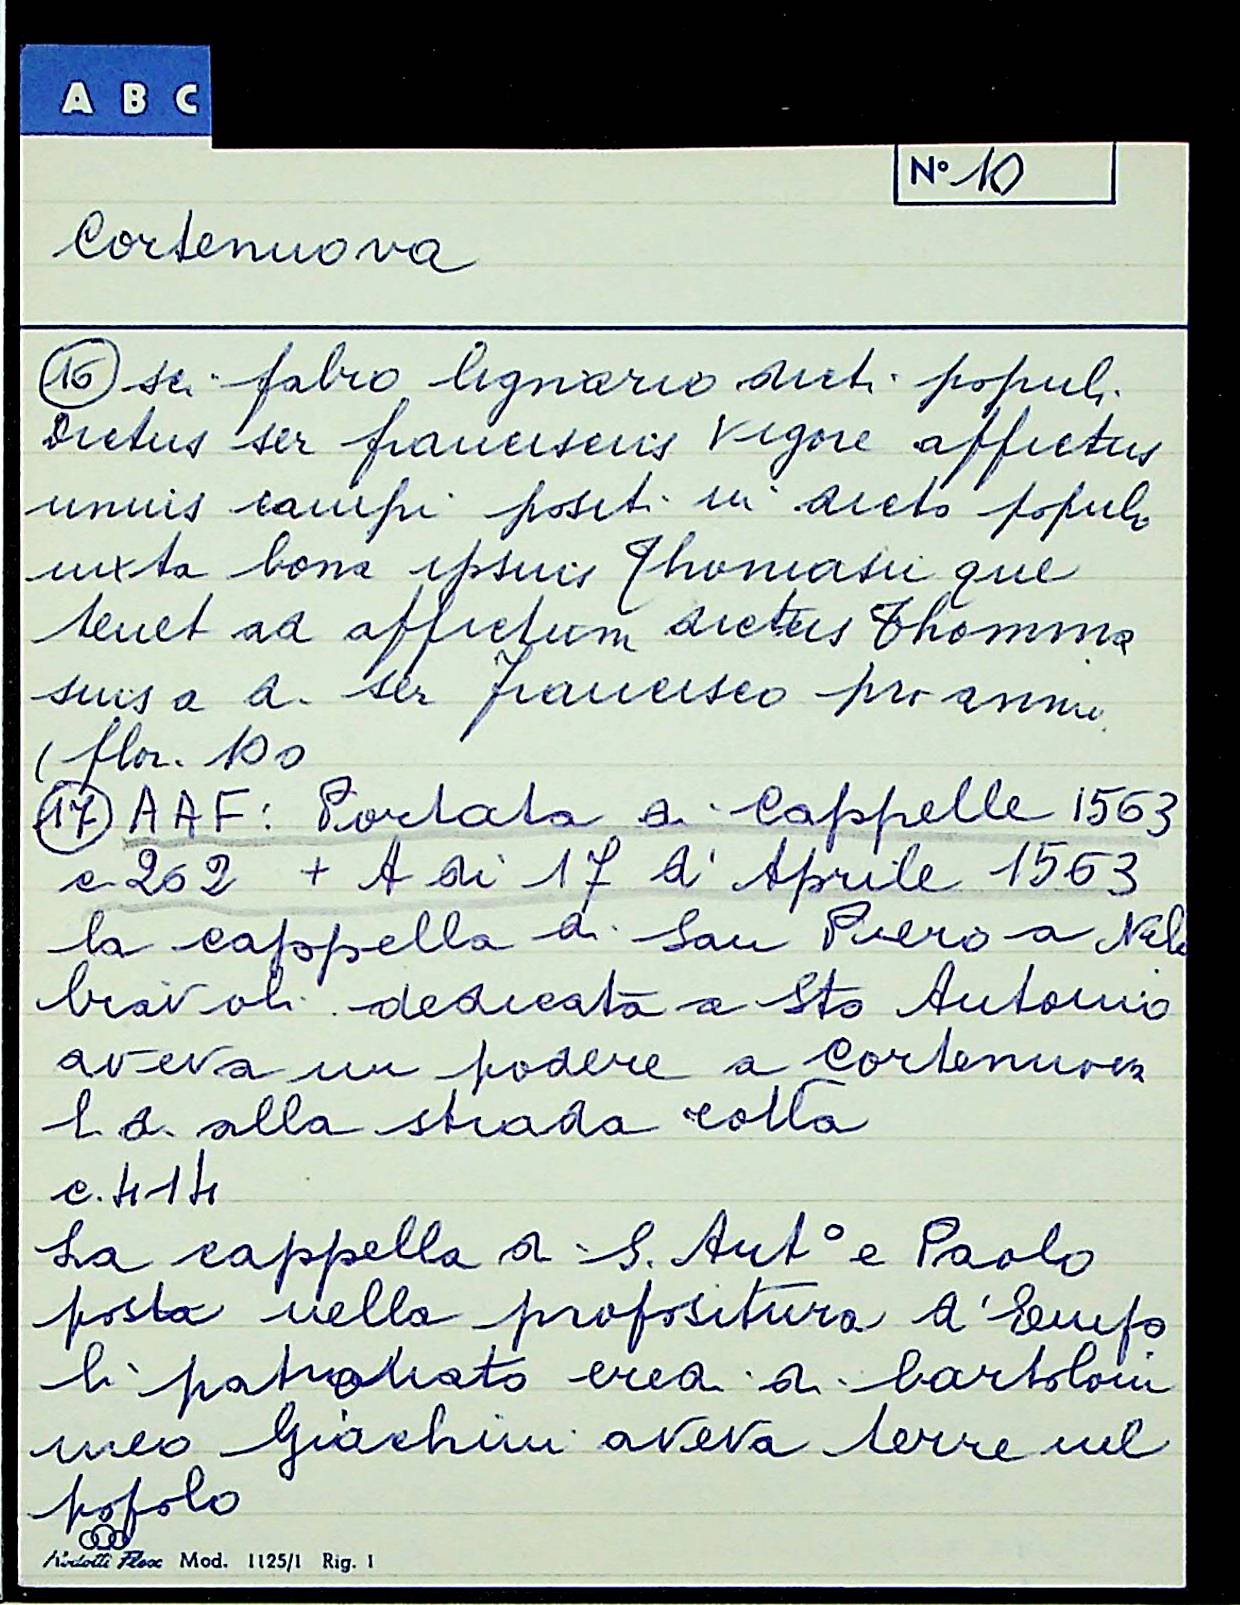 A B C
Nº 10
Cortenuova
(16) sci. fabro lignario dicti populi.
Dictus ser franciscus vigore affictus
unius campi positi in dicto populo
iuxta bona ipsius Thomasii que
tenet ad affictum dictus Thomma
sius a d. ser Francisco pro anno
( flor. 10 0
(17) AAF: Portata di Cappelle 1563
c 262 + A dì 17 d' Aprile 1563
la cappella di San Piero a Neb
biavoli dedicata a Sto Antonio
aveva un podere a Cortenuova
l. d. alla strada rotta
c. 414
La cappella di S. Antº e Paolo
posta nella propositura d'Empo
li patronato eredi di bartolom
meo Giachini aveva terre nel
popolo
Flex Mod. 1125/1 Rig. 1